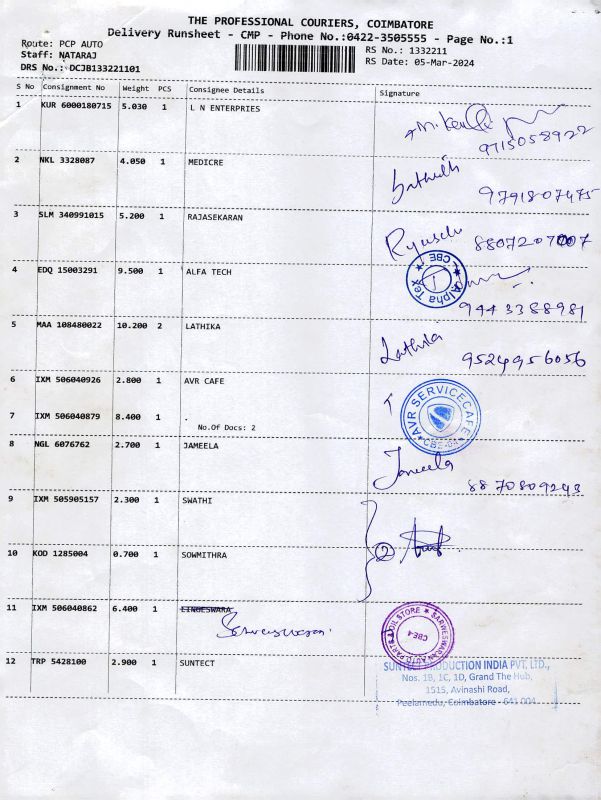 THE PROFESSIONAL COURIERS, COIMBATORE
Delivery Runsheet - CMP - Phone No.:0422-3505555 - Page No.:1
Route: PCP AUTO
Staff: NATARAJ
DRS No.: DCJB133221101
RS No.: 1332211
RS Date: 05-Mar-2024
S No Consignment No Weight PCS Consignee Details Signature
1 KUR 6000180715 5.030 1 L N ENTERPRIES
9715058922
2 NKL 3328087 4.050 1 MEDICRE
9791807475
3 SLM 340991015 5.200 1 RAJASEKARAN
8807207007
4 EDQ 15003291 9.500 1 ALFA TECH
Alpha Tex CBE
9443388981
5 MAA 108480022 10.200 2 LATHIKA
Lathika 9524956056
6 IXM 506040926 2.800 1 AVR CAFE
AVR SERVICE CAFE
7 IXM 506040879 8.400 1 .
No.Of Docs: 2
8 NGL 6076762 2.700 1 JAMEELA
Jameela 8870809243
9 IXM 505905157 2.300 1 SWATHI
2
10 KOD 1285004 0.700 1 SOWMITHRA
11 IXM 506040862 6.400 1 LINGESWARA
SARWESWARAN AUTO PARTS & OIL STORE CBE-4
12 TRP 5428100 2.900 1 SUNTECT
SUNTECT PRODUCTION INDIA PVT. LTD.,
Nos. 1B, 1C, 1D, Grand The Hub,
1515, Avinashi Road,
Peelamedu, Coimbatore - 641 004